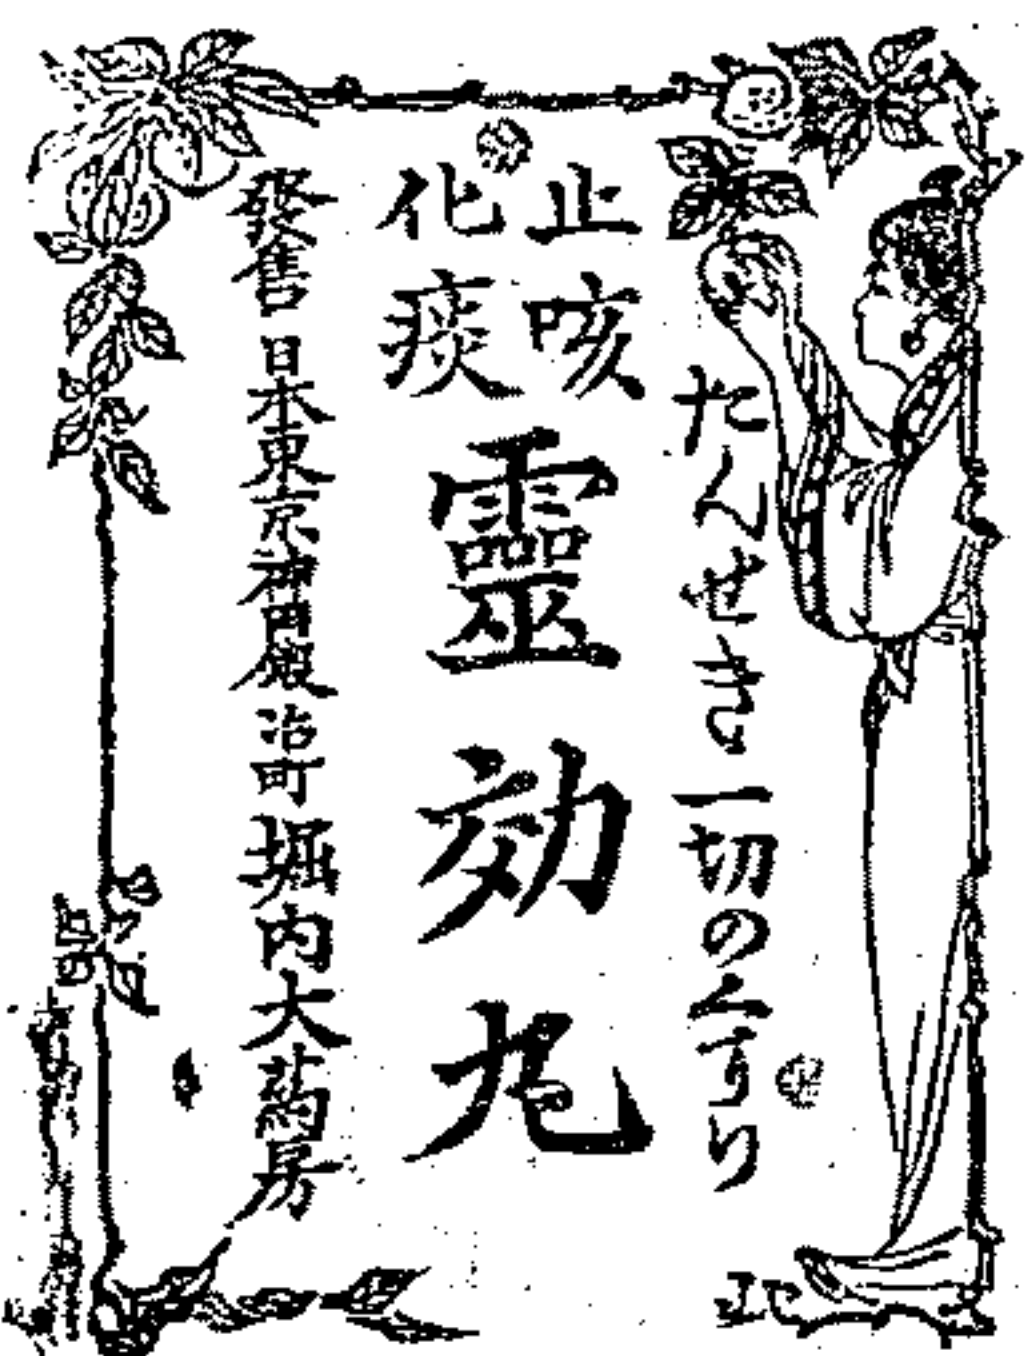 たんせき一切のくすり
止咳
化痰
靈効丸
發售 日本東京神田鍛冶町堀内大葯房